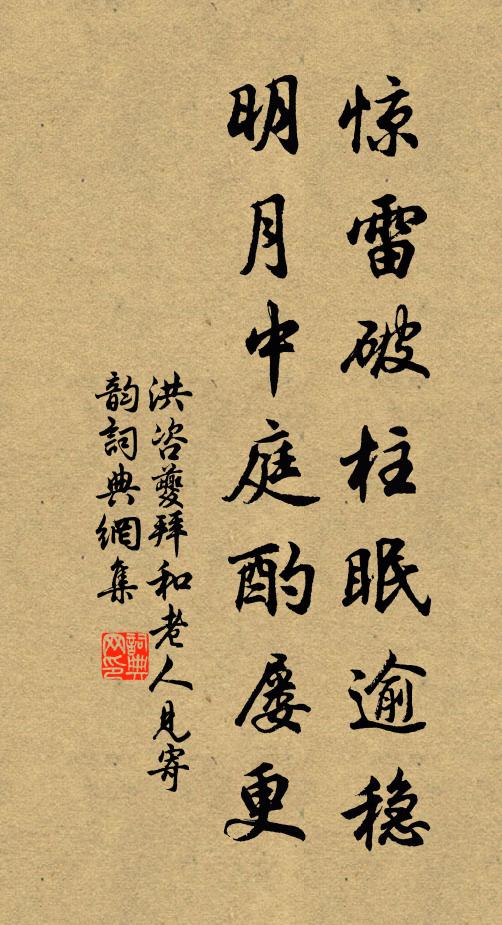 惊雷破柱眠逾稳
明月中庭酌屡更
洪咨夔拜和老人见寄
韵词典網集
詞典
网印